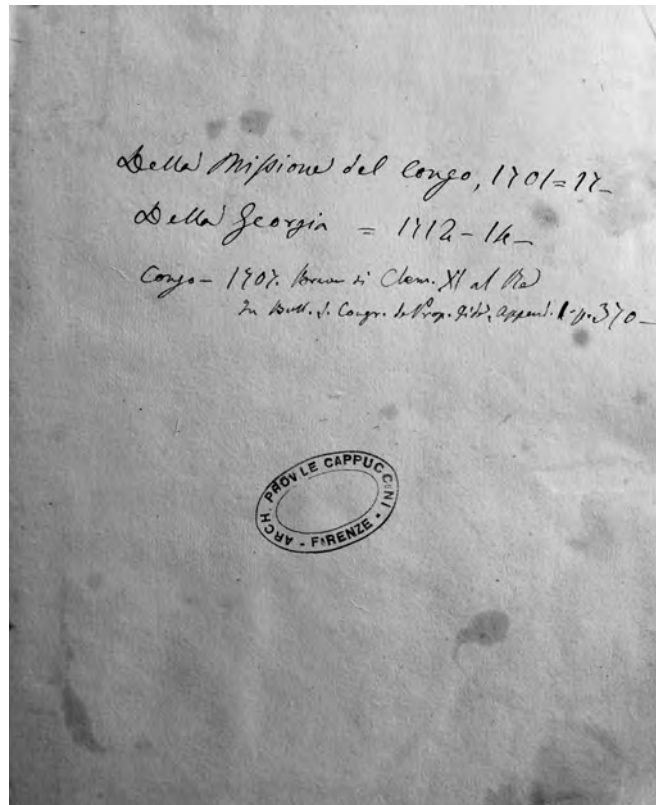 Della Missione del Congo, 1701=17–
Della Georgia = 1712–14–
Congo – 1707. Breve di Clem. XI al Re
In Bull. d. Congr. de Prop. Fide, Append. 1– p. 370–
ARCH. PROV.LE CAPPUCCINI • - FIRENZE -